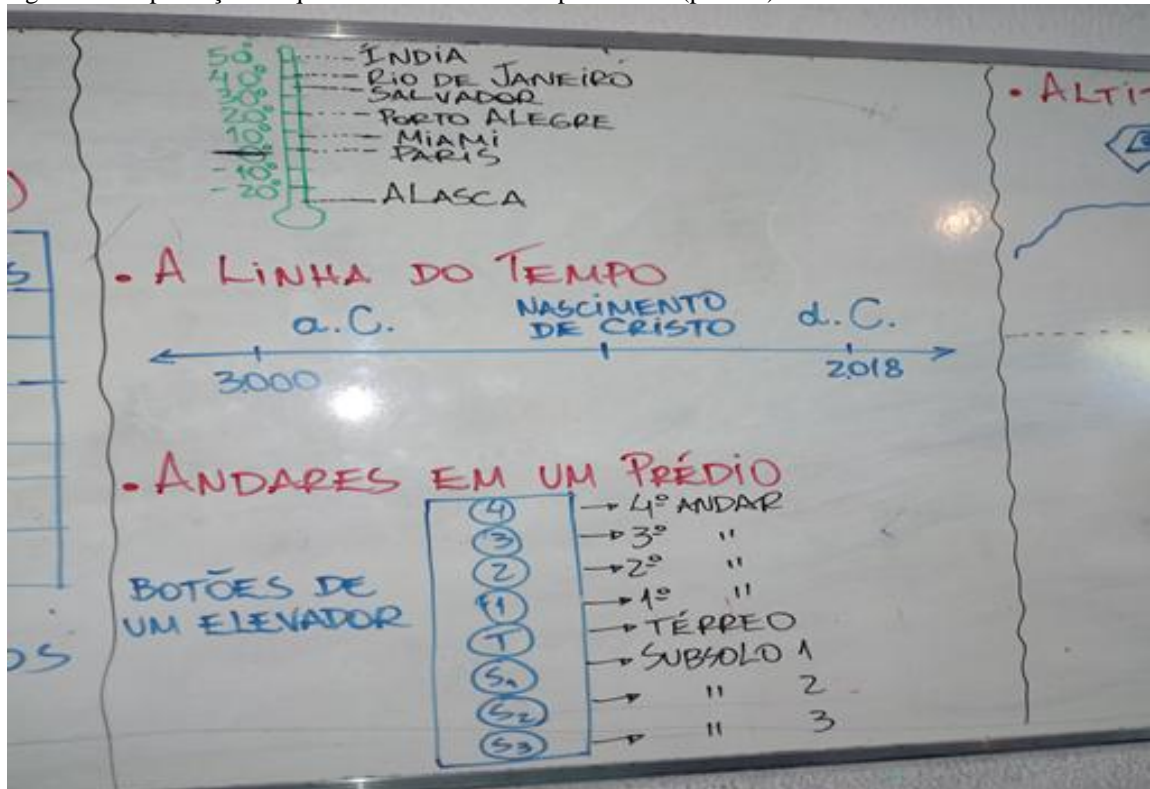 50° ÍNDIA
40° RIO DE JANEIRO
30° SALVADOR
20° PORTO ALEGRE
10° MIAMI
0° PARIS
-10°
-20° ALASCA
• A LINHA DO TEMPO
a.C. NASCIMENTO DE CRISTO d.C.
3000 2018
• ANDARES EM UM PRÉDIO
BOTÕES DE
UM ELEVADOR
4 → 4º ANDAR
3 → 3º "
2 → 2º "
1 → 1º "
T → TÉRREO
S1 → SUBSOLO 1
S2 → " 2
S3 → " 3
• ALTI-
S
OS